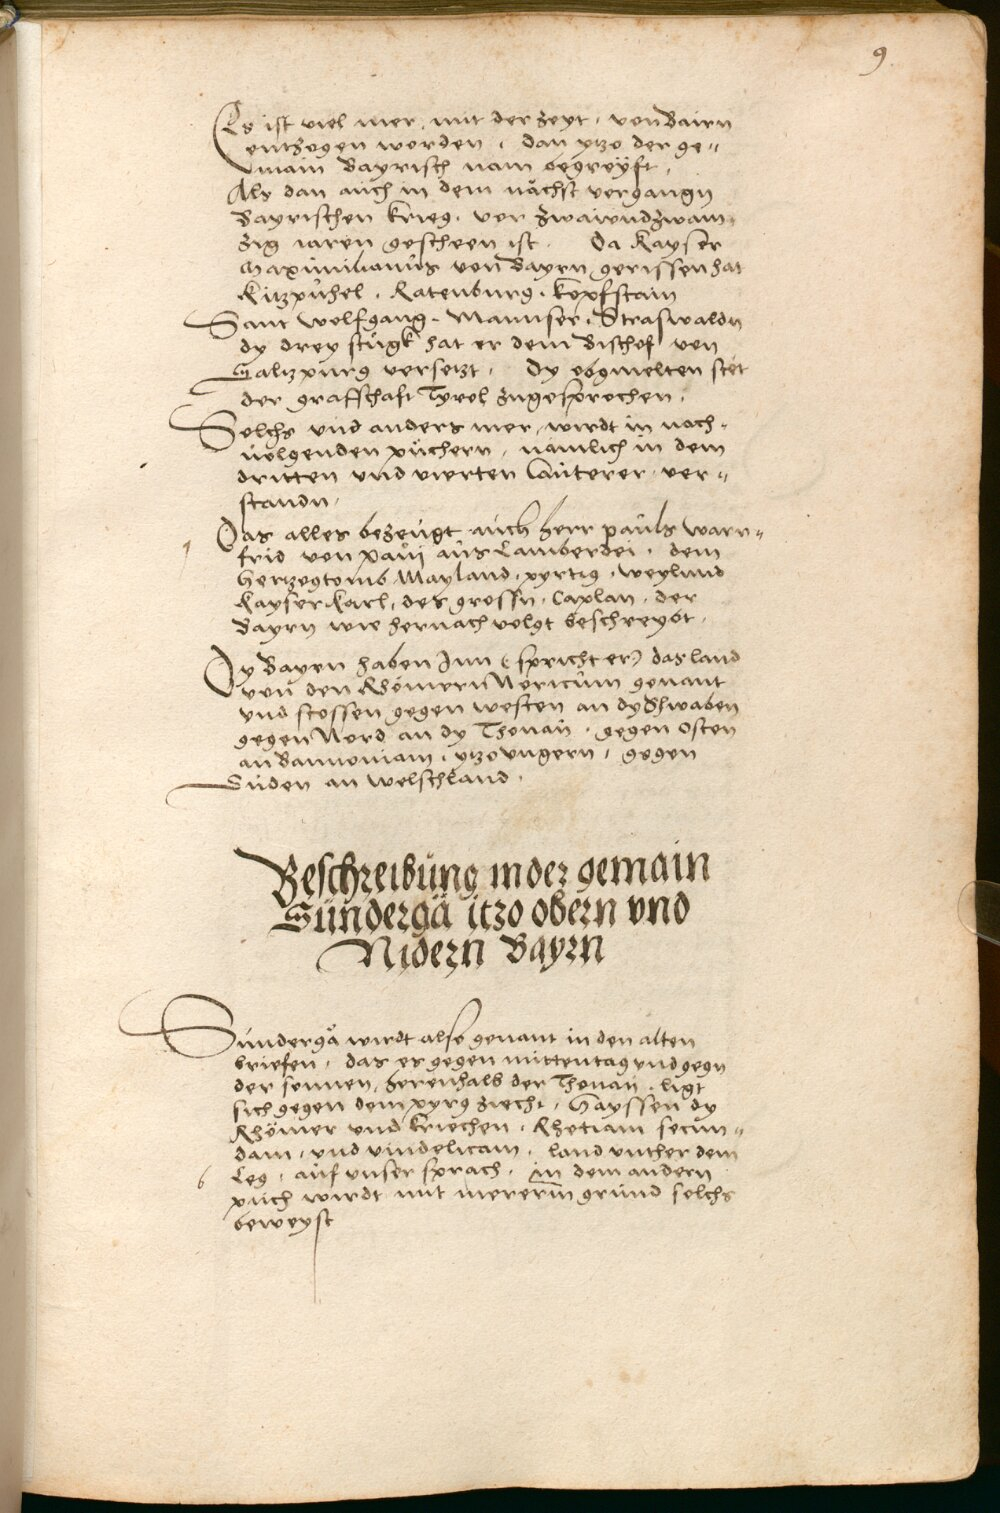 9
Es ist viel mer, mit der zeyt, von Bairn
entzogen worden, dan ytzo der ge=
main Bayrisch nam begreyfft,
Als dan auch in dem nächst vergangn
Bayrischen krieg, vor zwaiundzwain=
zig iaren gescheen ist. Da Kayser
Maximilianus von Bayrn gerissen hat
Kitzpühel, Ratenburg, kopfstain
Sant Wolfgang, Mannser, Straswaldn
dy drey stügk hat er dem Bischof von
Saltzpurg versetzt, Dy obgmelten stet
der grafschaft Tyrol zugesprochen,
Solchs und anders mer, wirdt in nach=
uolgenden püchern, nämlich in dem
dritten und vierten lauterer ver=
standn,
Das alles bezeügt auch herr pauls Warn=
frid von paüi aus Lamberdei, dem
Hertzogtomb Mayland, pyrtig, weylund
Kayser Karl, des grossn, Caplan, der
Bayrn wie hernach volgt beschreybt,
Dy Bayrn haben Inn (spricht er) das land
von den Rhömern Noricum genant
und stossen gegen westen an dy Schwaben
gegen Nord an dy Thonau, gegen Osten
an Bannoniam, ytzo ungern, gegen
Süden an welschland,
Beschreibung in der gemain
Sündergä itzo obern vnd
Nidern Bayrn
Sündergä wirdt also genant in den alten
briefen, das es gegen mittentag und gegn
der sonnen, herenhalb der Thonau, ligt
sich gegen dem pyrg ziecht, Hayssen dy
Rhömer und kriechen, Rhetiam secun=
dam, und vindelicam, land unther dem
6 Leg, auf unser sprach, in dem andern
puch wirdt mit mererm grund solchs
beweyst